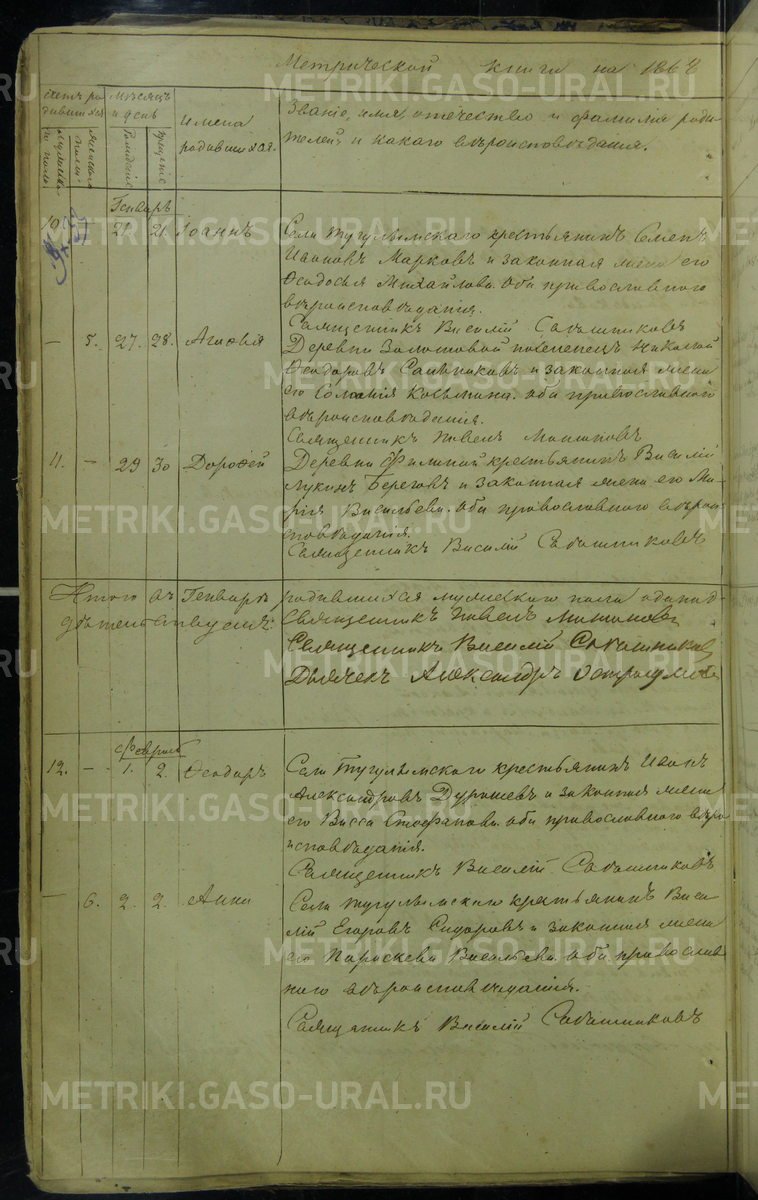 Метрической книги на 1864
Счетъ родившихся
Мѣсяцъ и день
Имена родившихся.
Званіе, имя, отечество и фамилія родителей, и какаго вѣроисповѣданія.
Мужеска полу.
Женскаго полу.
Рожденія
Крещенія
Генварь
10. 21. 21 Іоаннъ
Села Тугулымскаго крестьянинъ Семенъ
Ивановъ Марковъ и законная жена его
Ѳеодосья Михайлова. оба православнаго
вѣроисповѣданія.
Священникъ Василій Сабашниковъ
— 5. 27. 28. Агафія
Деревни Золотовой поселенецъ Николай
Ѳеодоровъ Сальниковъ и законная жена
его Соломія Косьмина. оба православнаго
вѣроисповѣданія.
Священникъ Павелъ
11. — 29 30 Дороѳей
Деревни крестьянинъ Василій
Лукинъ Береговъ и законная жена его Ма-
рія Васильева. оба православнаго вѣрои-
сповѣданія.
Священникъ Василій Сабашниковъ
Итого въ Генварѣ родившихся мужескаго пола одинад-
Священникъ Павелъ
Священникъ Василій Сабашниковъ
Дьячекъ Александръ
Февраль
12. — 1. 2. Ѳеодоръ
Села Тугулымскаго крестьянинъ Иванъ
Александровъ и законная жена
его Васса Стефанова. оба православнаго вѣро-
исповѣданія.
Священникъ Василій Сабашниковъ
— 6. 2. 2. Анна
Села Тугулымскаго крестьянинъ Васи-
лій Егоровъ Сидоровъ и законная жена
его Параскева Васильева. оба православ-
наго вѣроисповѣданія.
Священникъ Василій Сабашниковъ
METRIKI.GASO-URAL.RU